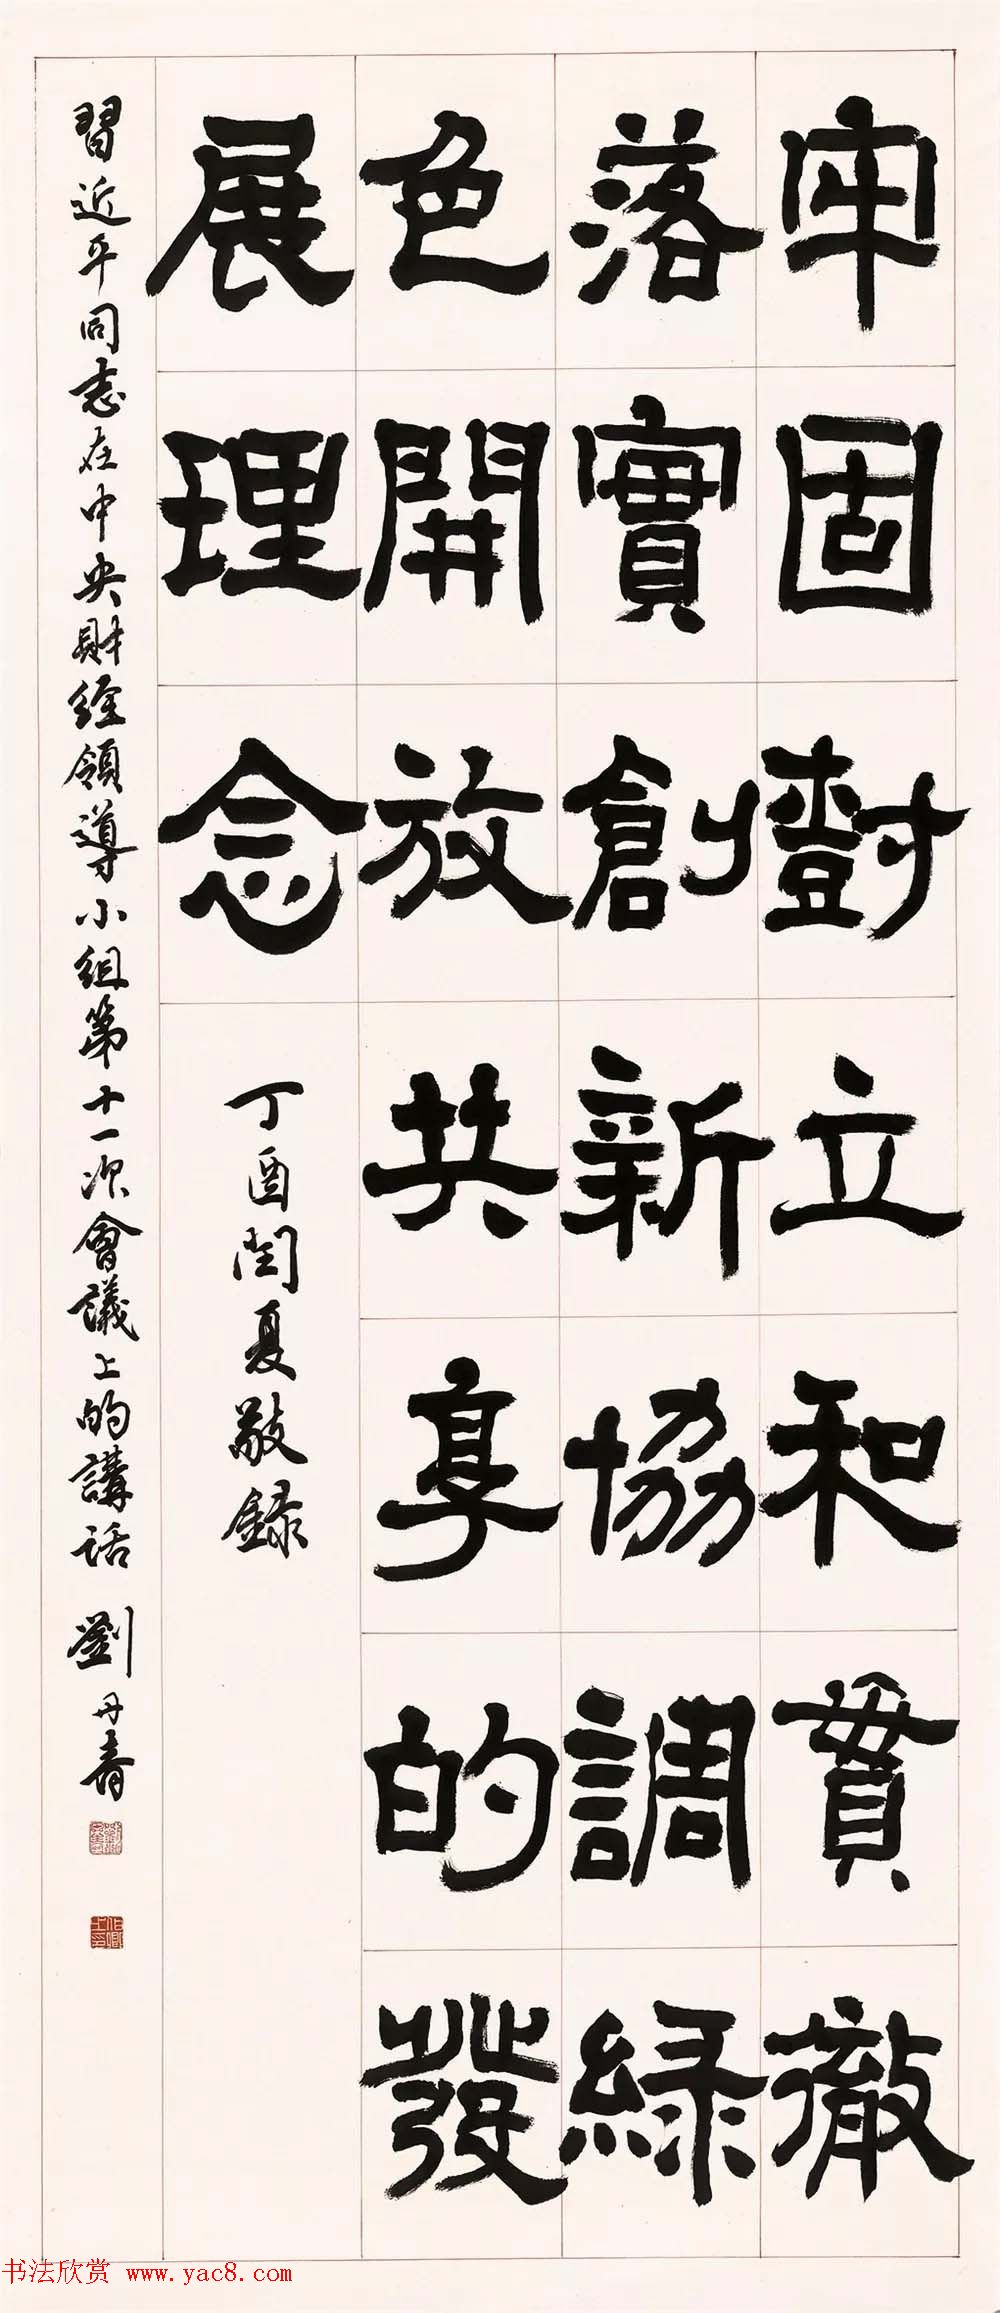 牢固樹立和貫徹
落實創新協調綠
色開放共享的發
展理念
丁酉閏夏敬錄
習近平同志在中央財經領導小組第十一次會議上的講話
劉丹青
书法欣赏 www.yac8.com